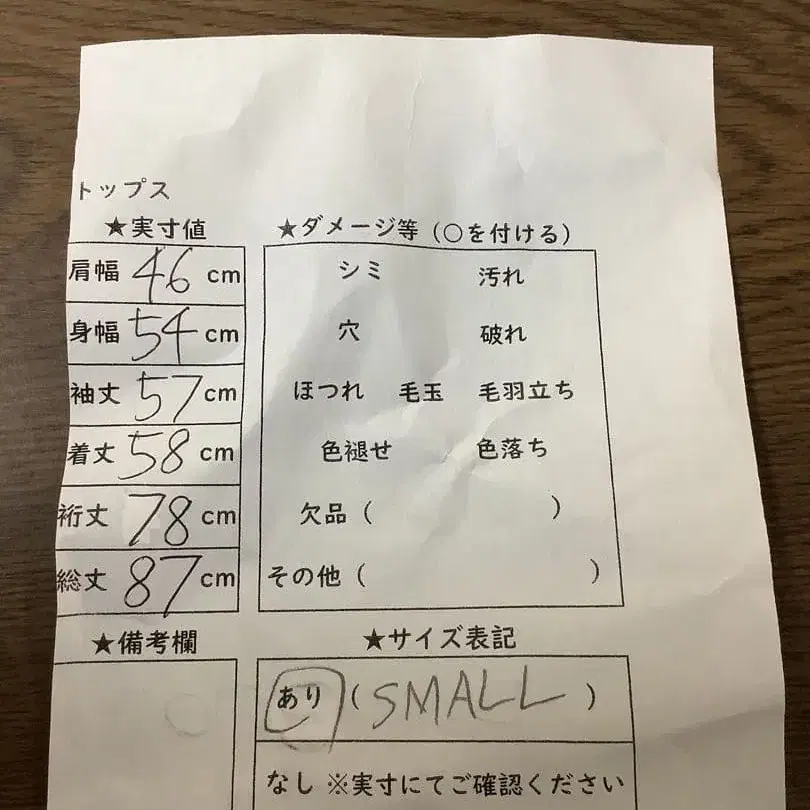 トップス
★実寸値
肩幅 46 cm
身幅 54 cm
袖丈 57 cm
着丈 58 cm
裄丈 78 cm
総丈 87 cm
★備考欄
★ダメージ等（○を付ける）
シミ 汚れ
穴 破れ
ほつれ 毛玉 毛羽立ち
色褪せ 色落ち
欠品（ ）
その他（ ）
★サイズ表記
あり（SMALL）
なし ※実寸にてご確認ください